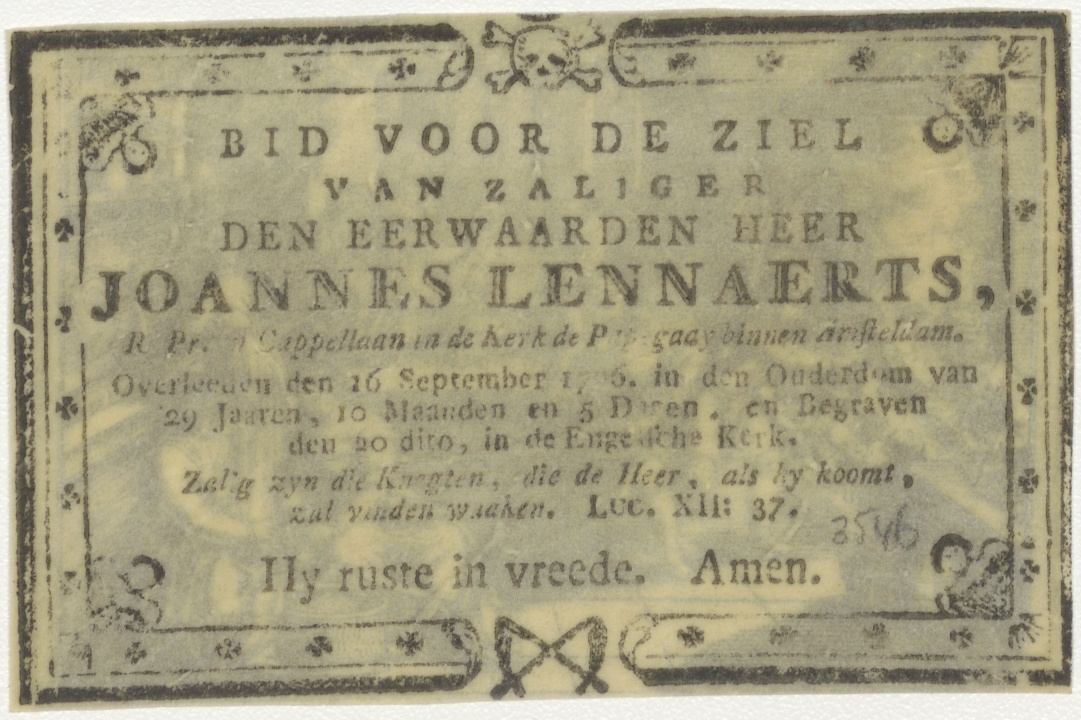 BID VOOR DE ZIEL
VAN ZALIGER
DEN EERWAARDEN HEER
JOANNES LENNAERTS,
R. Pr. Cappellaan in de Kerk de Papegaay binnen Amsteldam.
Overleeden den 16 September in den Ouderdom van
29 Jaaren, 10 Maanden en 5 Dagen, en Begraven
den 20 dito, in de Engelsche Kerk.
Zalig zyn die Knegten, die de Heer, als hy koomt,
zal vinden waaken. Luc. XII: 37.
3546
Hy ruste in vreede. Amen.